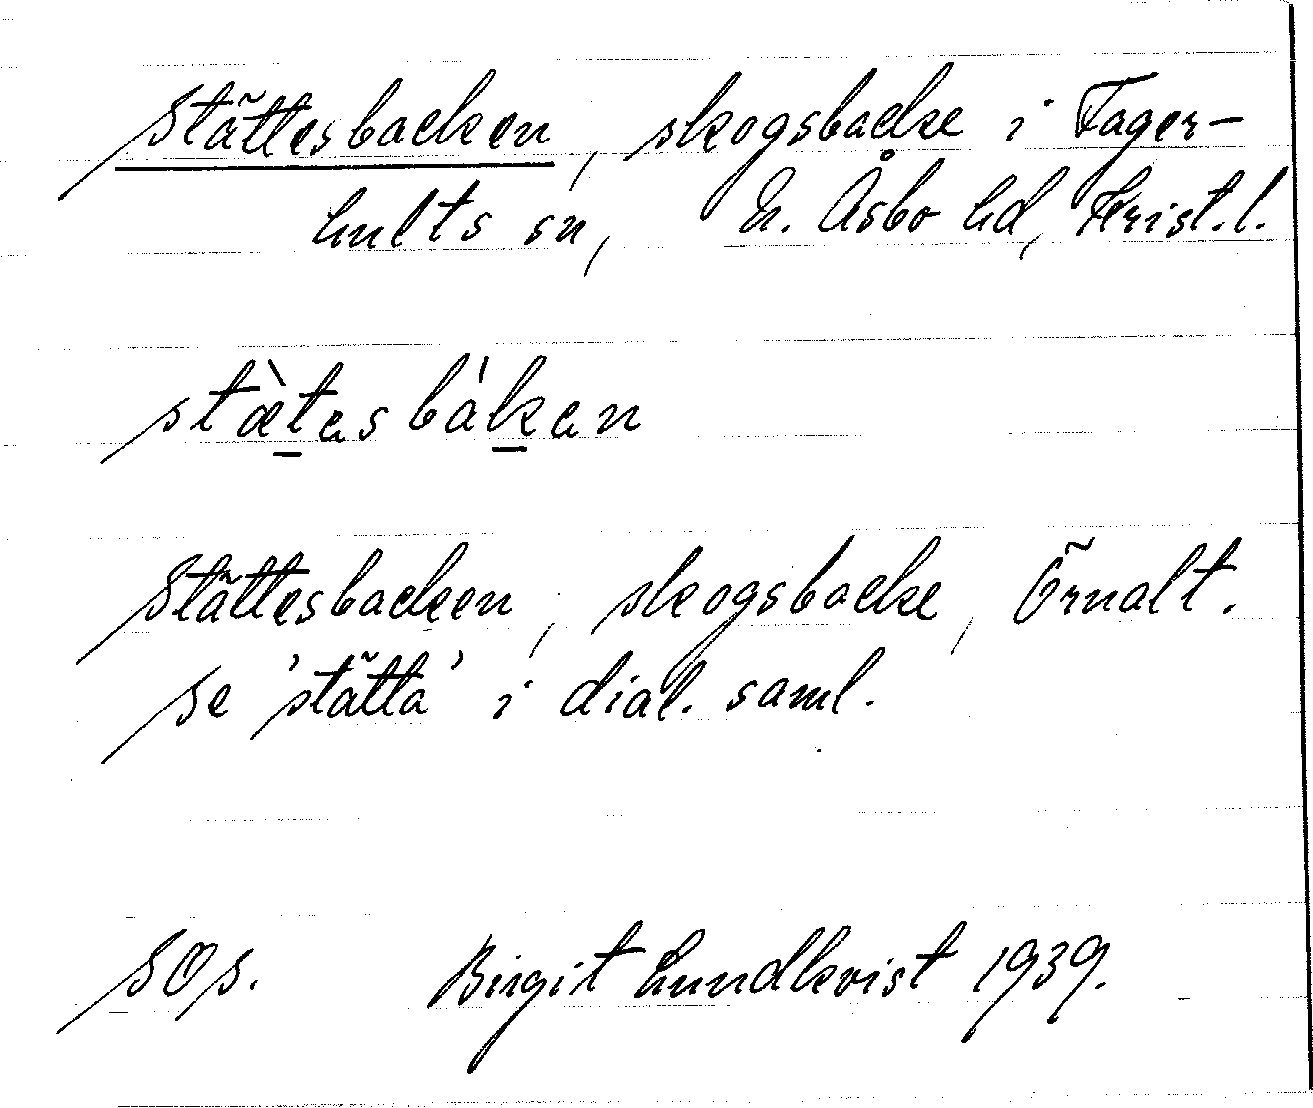 Stättesbacken, skogsbacke i Fager-
hults sn, N. Åsbo hd, Krist.l.
stæ̀tesbákan
Stättesbacken, skogsbacke, Örnalt.
Se 'stätta' i dial. saml.
SOS. Birgit Lundkvist 1939.